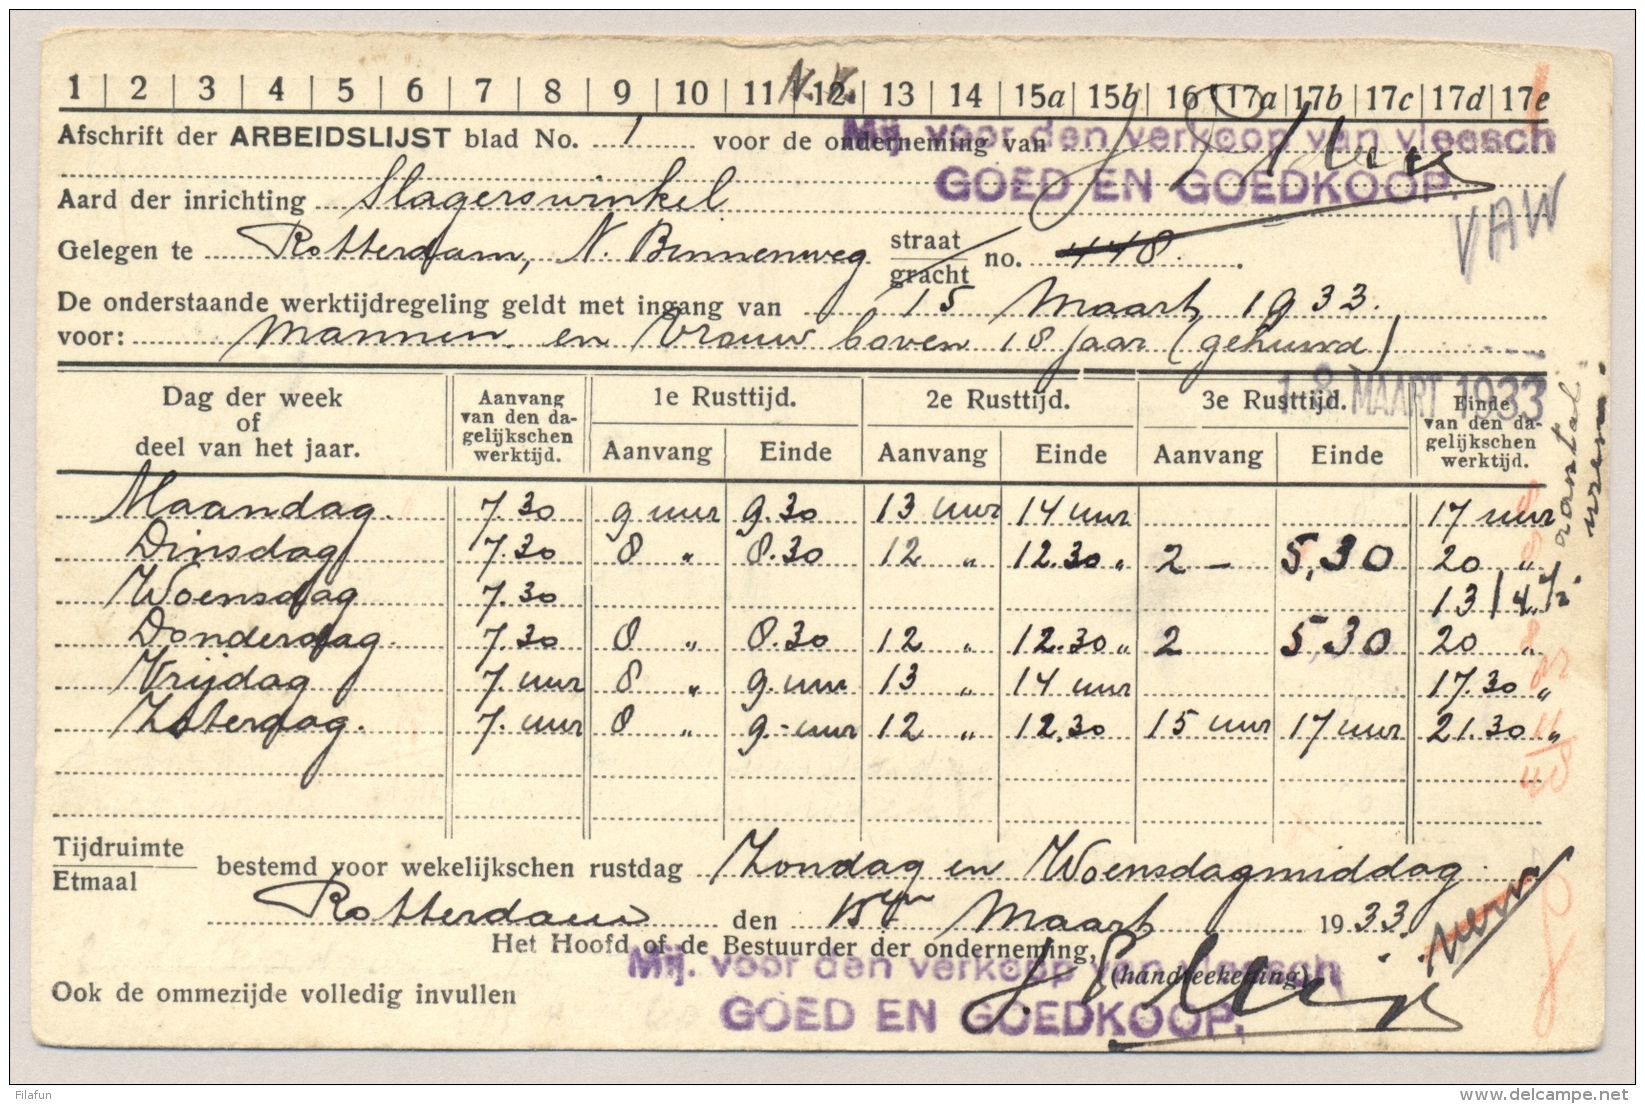 1 | 2 | 3 | 4 | 5 | 6 | 7 | 8 | 9 | 10 | 11 | 12 | 13 | 14 | 15a | 15b | 16 | 17a | 17b | 17c | 17d | 17e
N.V.
Mij. voor den verkoop van vleesch
Afschrift der ARBEIDSLIJST blad No. 1 voor de onderneming van
GOED EN GOEDKOOP.
Aard der inrichting Slagerswinkel
VAW
Gelegen te Rotterdam, N. Binnenweg straat/gracht no. 448.
De onderstaande werktijdregeling geldt met ingang van 15 Maart 1933.
voor: mannen en vrouw boven 18 jaar (gehuwd)
18 MAART 1933
Dag der week of deel van het jaar. | Aanvang van den dagelijkschen werktijd. | 1e Rusttijd. | 2e Rusttijd. | 3e Rusttijd. | Einde van den dagelijkschen werktijd.
Aanvang | Einde | Aanvang | Einde | Aanvang | Einde
aantal uren
Maandag. 7.30 9 uur 9.30 13 uur 14 uur 17 uur 8
Dinsdag 7.30 8 „ 8.30 12 „ 12.30 „ 2 – 5,30 20 „ 8
Woensdag 7.30 13 /4½
Donderdag. 7.30 8 „ 8.30 12 „ 12.30 „ 2 5.30 20 „ 8
Vrijdag 7. uur 8 „ 9. uur 13 „ 14 uur 17.30 „
Zaterdag. 7. uur 8 „ 9.- uur 12 „ 12.30 15 uur 17 uur 21.30 „ 11
48
Tijdruimte
Etmaal
bestemd voor wekelijkschen rustdag Zondag en Woensdagmiddag.
Rotterdam den 15den Maart 1933.
verv
Het Hoofd of de Bestuurder der onderneming,
Mij. voor den verkoop van vleesch
(handteekening)
Ook de ommezijde volledig invullen
GOED EN GOEDKOOP.
Filafun
delcampe.net